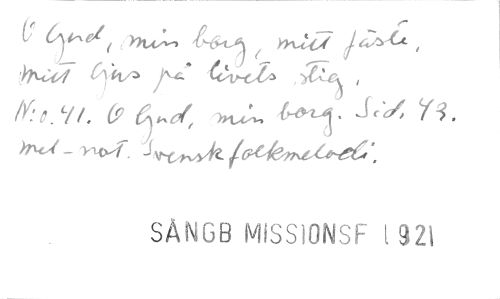 O Gud, min borg, mitt fäste,
mitt ljus på livets stig,
N:o. 41. O Gud, min borg. Sid. 43.
mel-not. Svensk folkmelodi.
SÅNGB MISSIONSF 1921